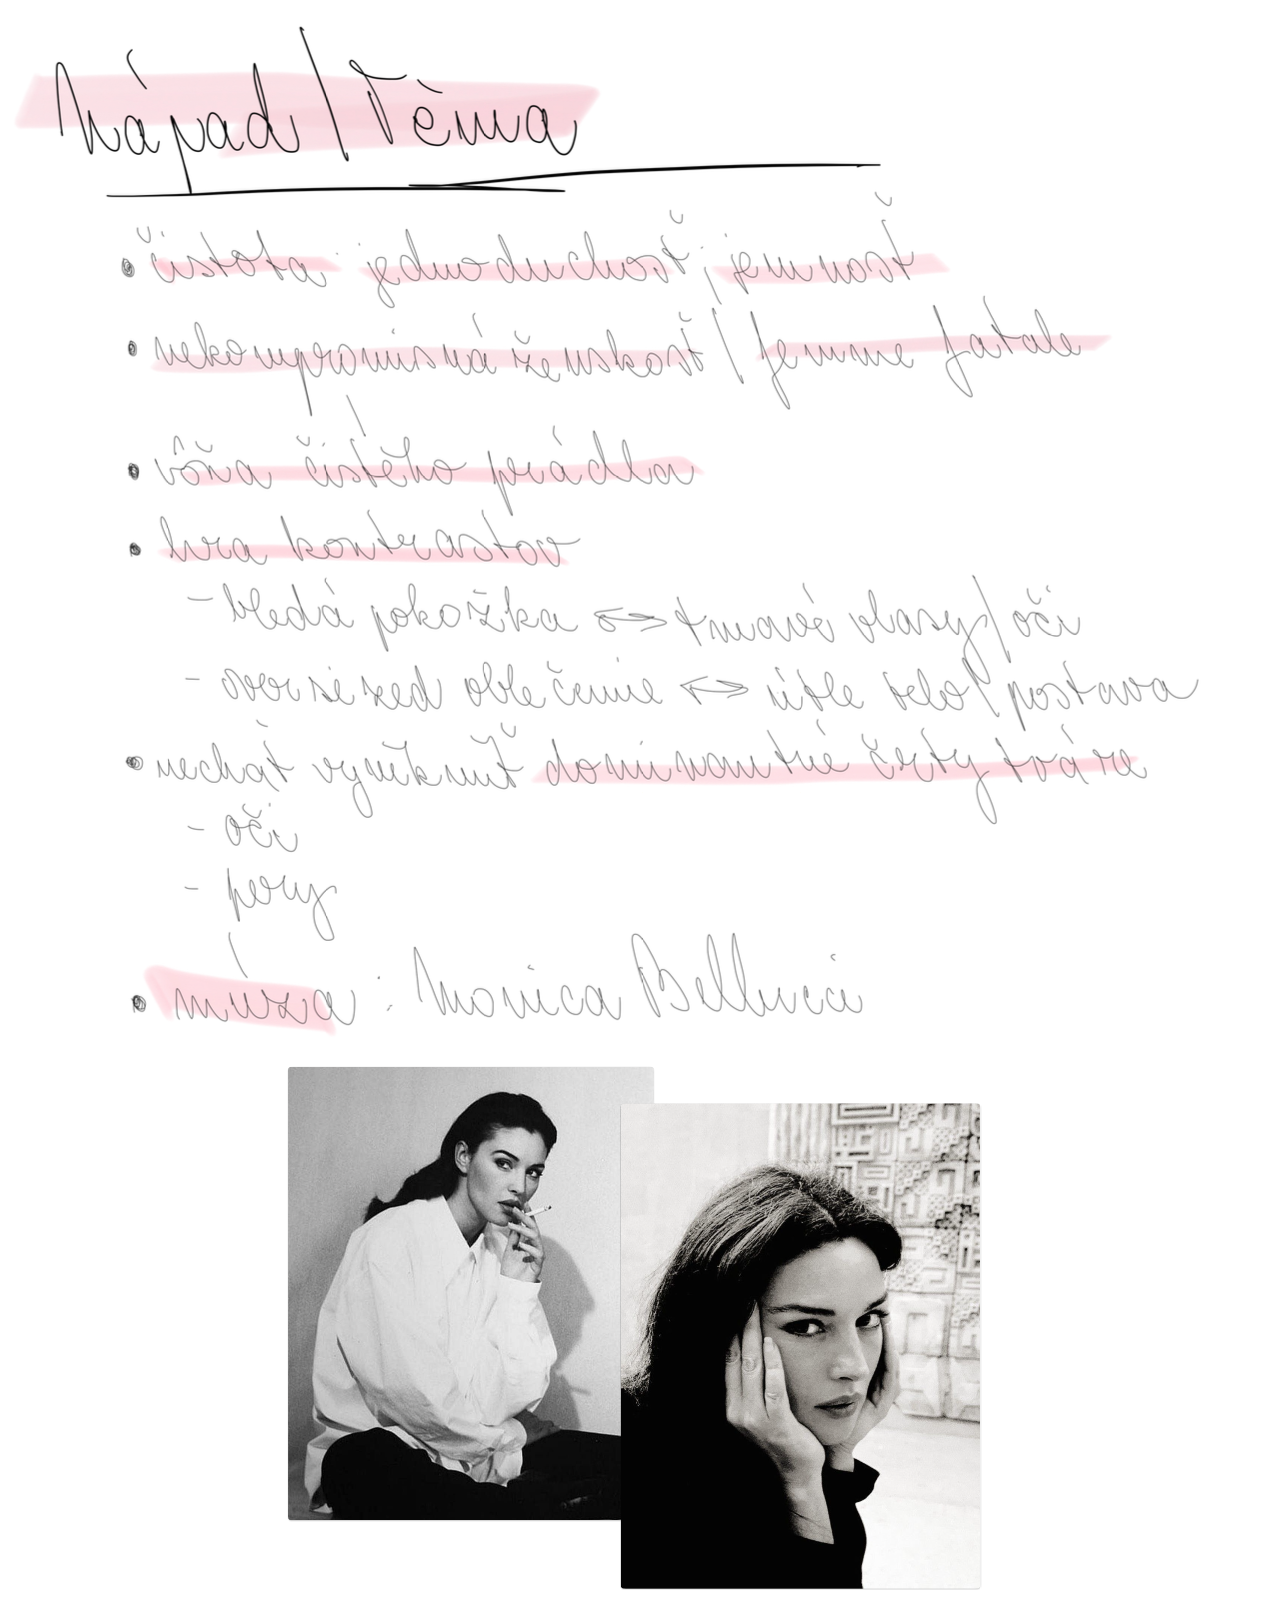 Nápad / Téma
• čistota, jednoduchosť, jemnosť
• nekompromisná ženskosť / femme fatale
• vôňa čistého prádla
• hra kontrastov
- bledá pokožka ↔ tmavé vlasy / oči
- oversized oblečenie ↔ útle telo / postava
• nechať vyniknúť dominantné črty tváre
- oči
- pery
• múza: Monica Bellucci